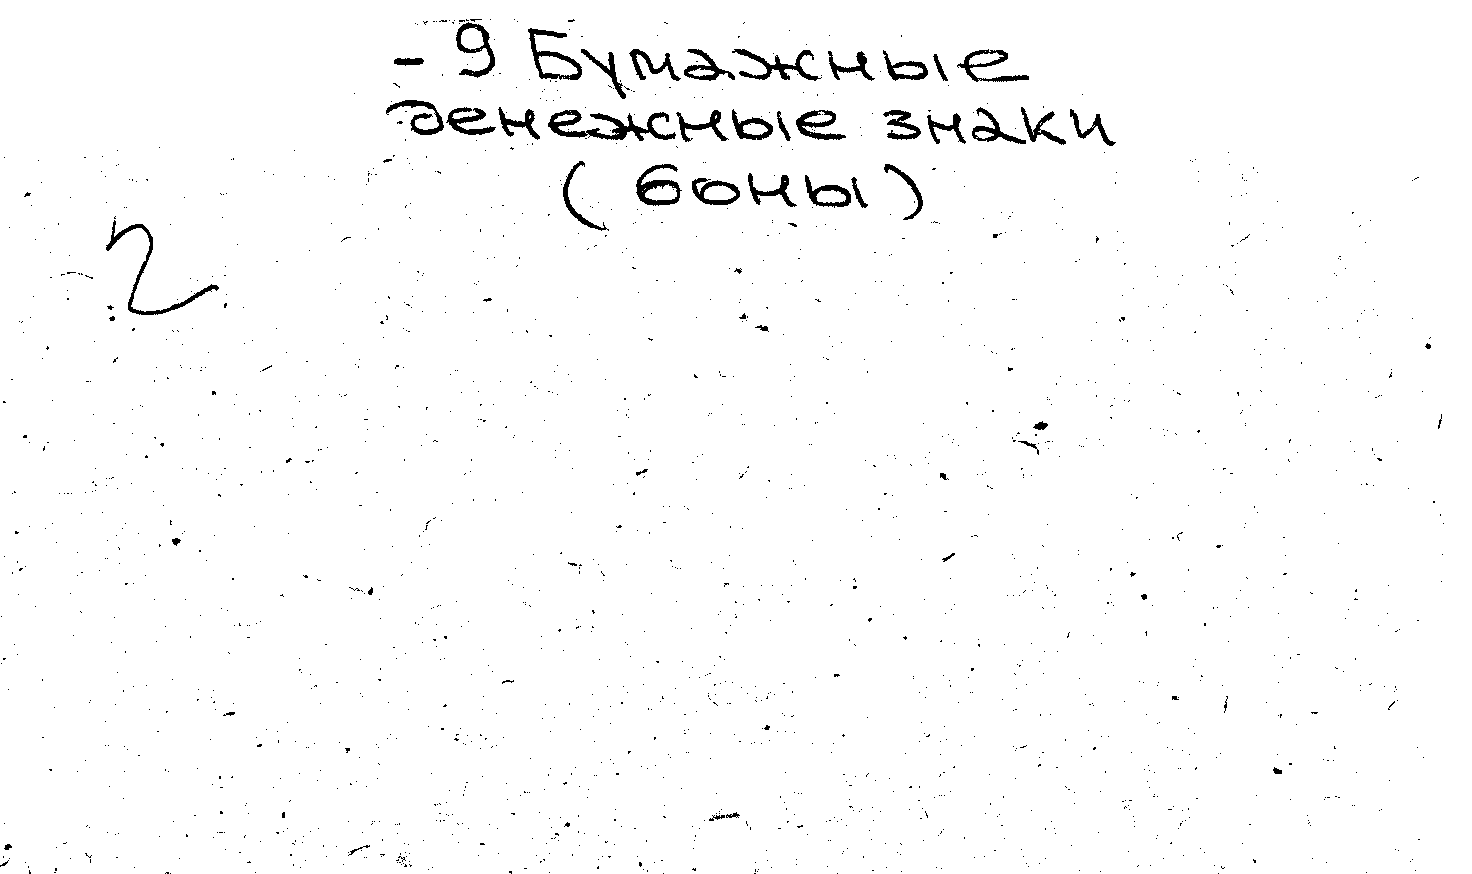 - 9 Бумажные
денежные знаки
(боны)